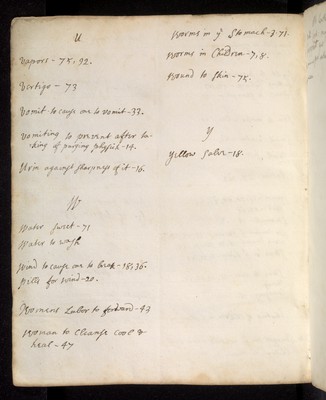 U
Vapors - 75, 92.
Vertigo - 73
Vomit to cause one to vomit - 33.
Vomiting to prevent after ta-
king of purging physick - 14.
Urin against sharpness of it - 16.
W
Water sweet - 71
Water to wash
Wind to cause one to break - 18, 36.
Pills for wind - 20.
Womens Labor to forward - 43
Woman to Cleanse Cool &
heal - 47
Worms in yͤ Stomach - 3. 71.
Worms in Children - 7, 8.
Wound to skin - 75.
Y
Yellow Salve - 18.